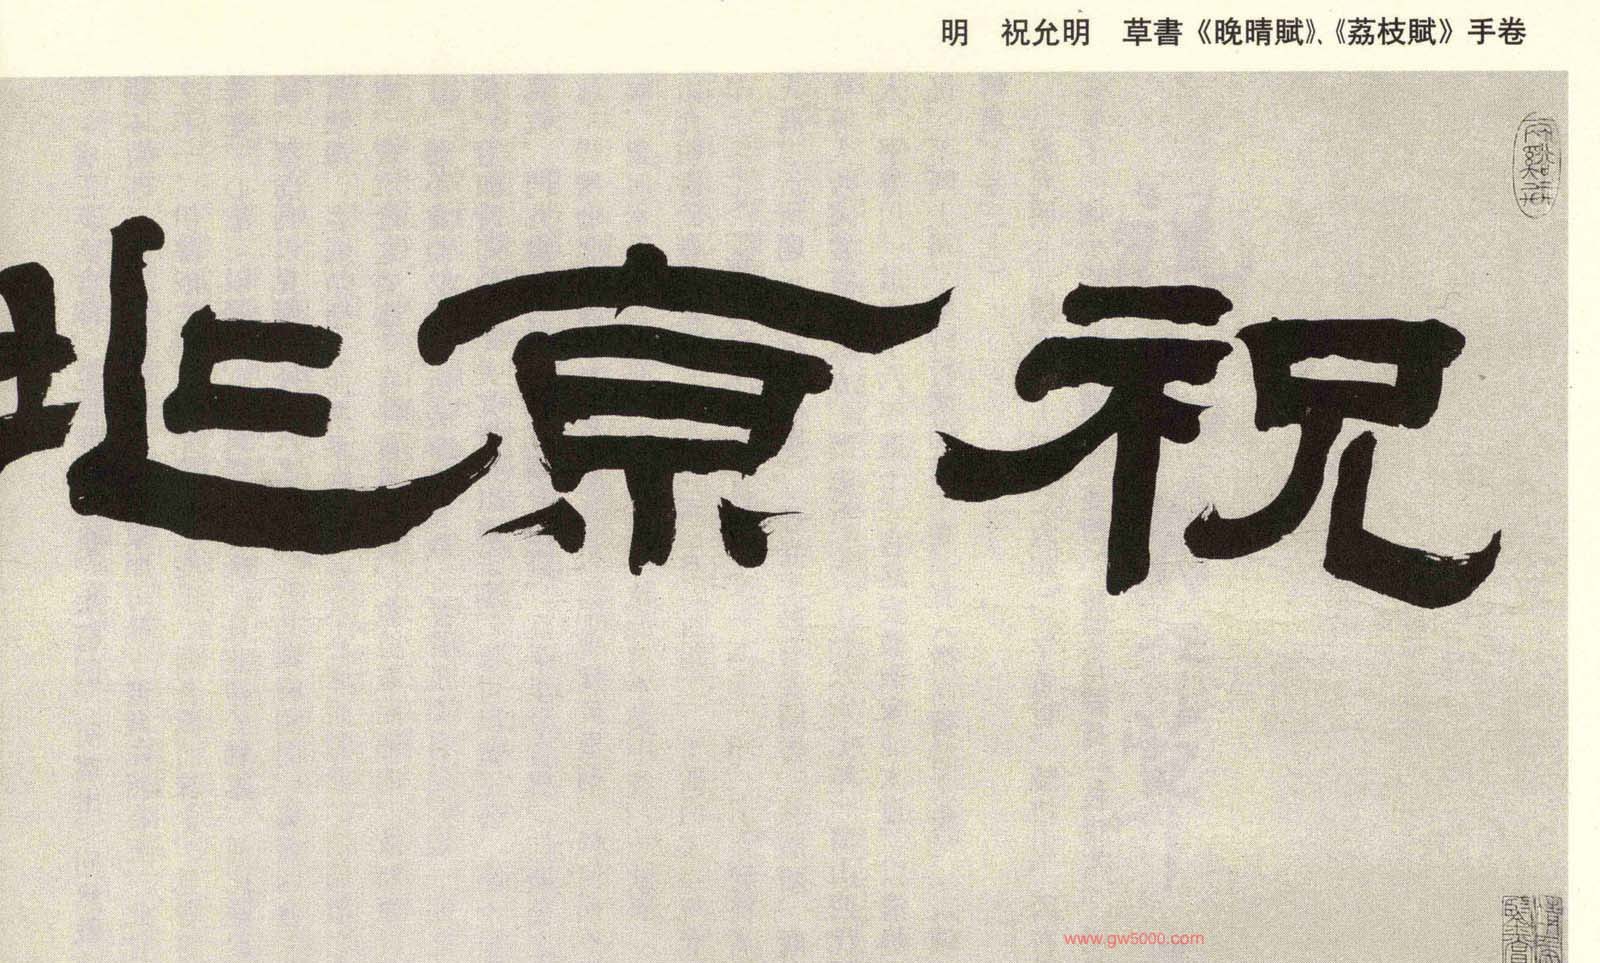 明　祝允明　草書《晚晴賦》、《荔枝賦》手卷
祝京兆
www.gw5000.com